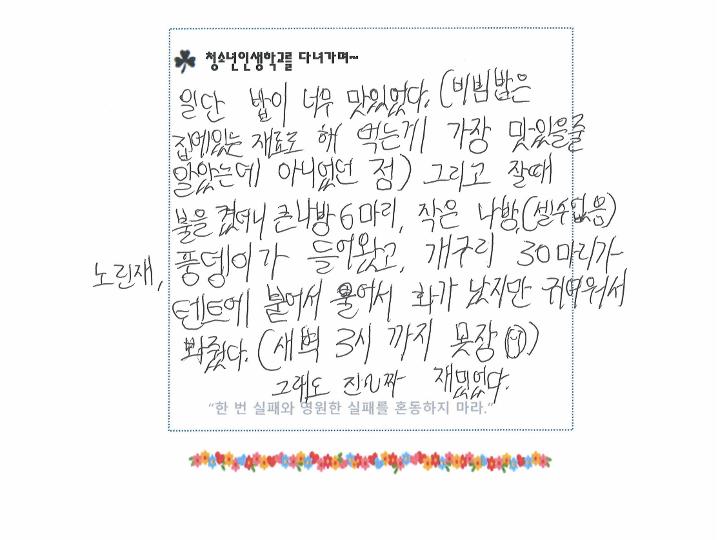 청소년인생학교를 다녀가며~
일단 밥이 너무 맛있었다. (비빔밥은
집에있는 재료로 해 먹는게 가장 맛있을줄
알았는데 아니었던 점) 그리고 잘때
불을 켰더니 큰나방 6마리, 작은 나방(셀수없음)
노린재, 풍뎅이가 들어왔고, 개구리 30마리가
텐트에 붙어서 울어서 화가 났지만 귀여워서
봐줬다. (새벽 3시 까지 못잠)
그래도 진짜 재밌었다.
"한 번 실패와 영원한 실패를 혼동하지 마라."